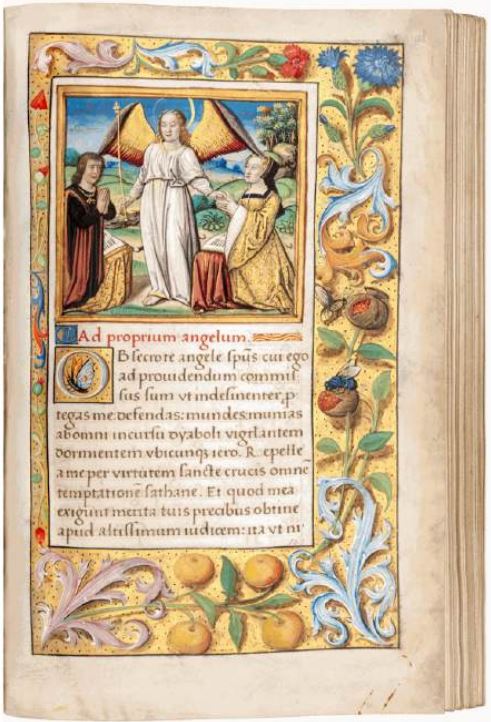 Ad proprium angelum.
OBsecro te angele spūs cui ego
ad prouidendum commis
sus sum vt indesinenter, p
tegas me: defendas: mundes: munias
ab omni incursu dyaboli vigilantem
dormientem vbicunqʒ iero. R epelle
a me per virtutem sancte crucis omnē
temptationē sathane. Et quod mea
exigunt merita tuis precibus obtine
apud altissimum iudicem: ita vt ni